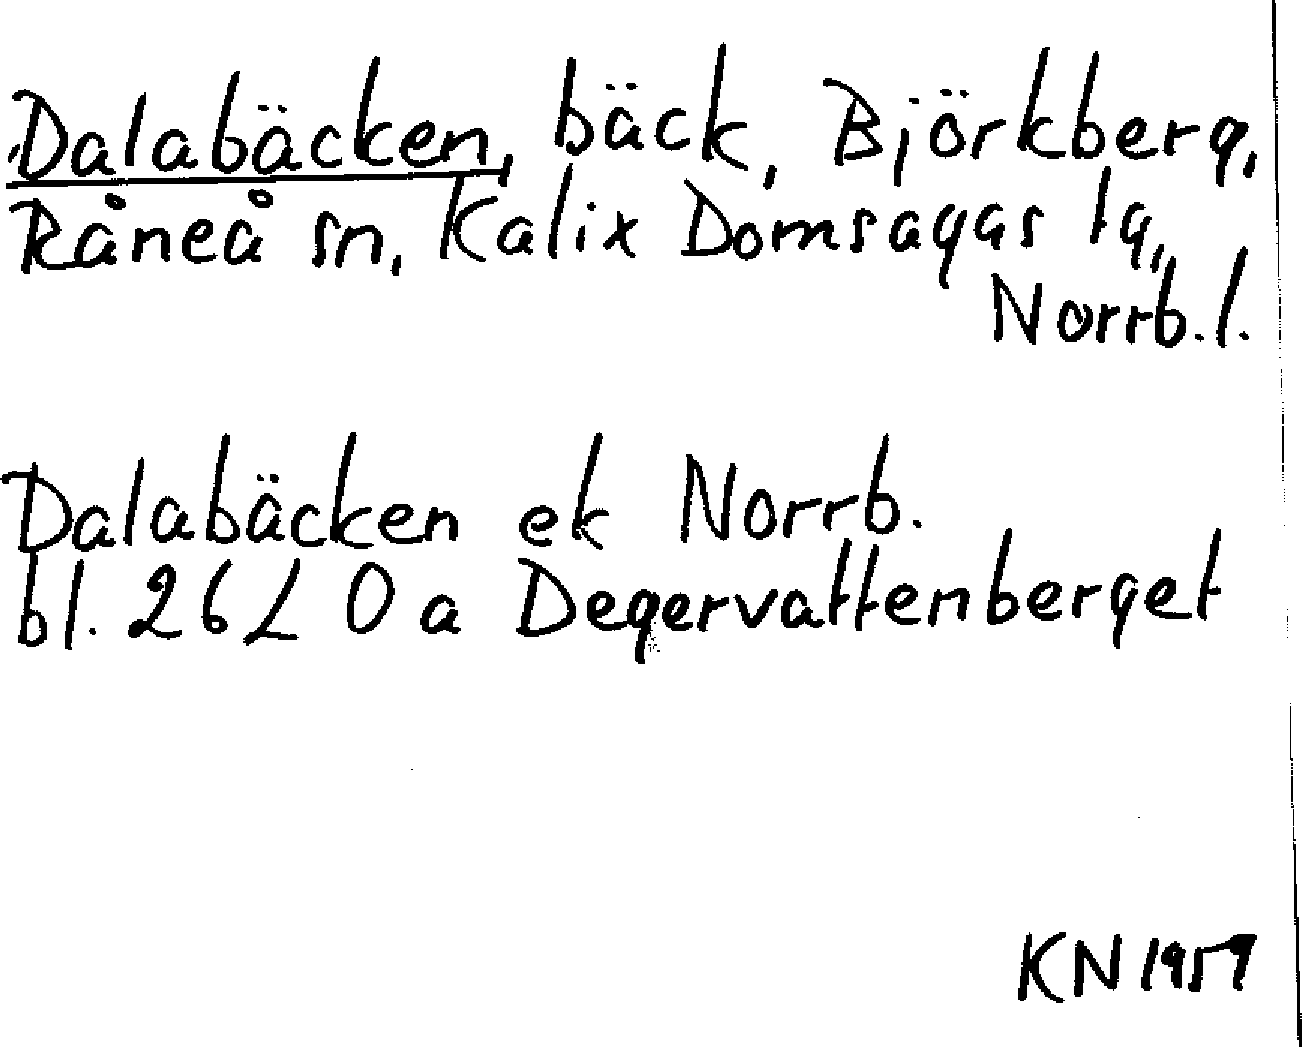 Dalabäcken, bäck, Björkberg,
Råneå sn, Kalix Domsagas tg,
Norrb. l.
Dalabäcken ek Norrb.
bl. 26 L 0 a Degervattenberget
KN 1959